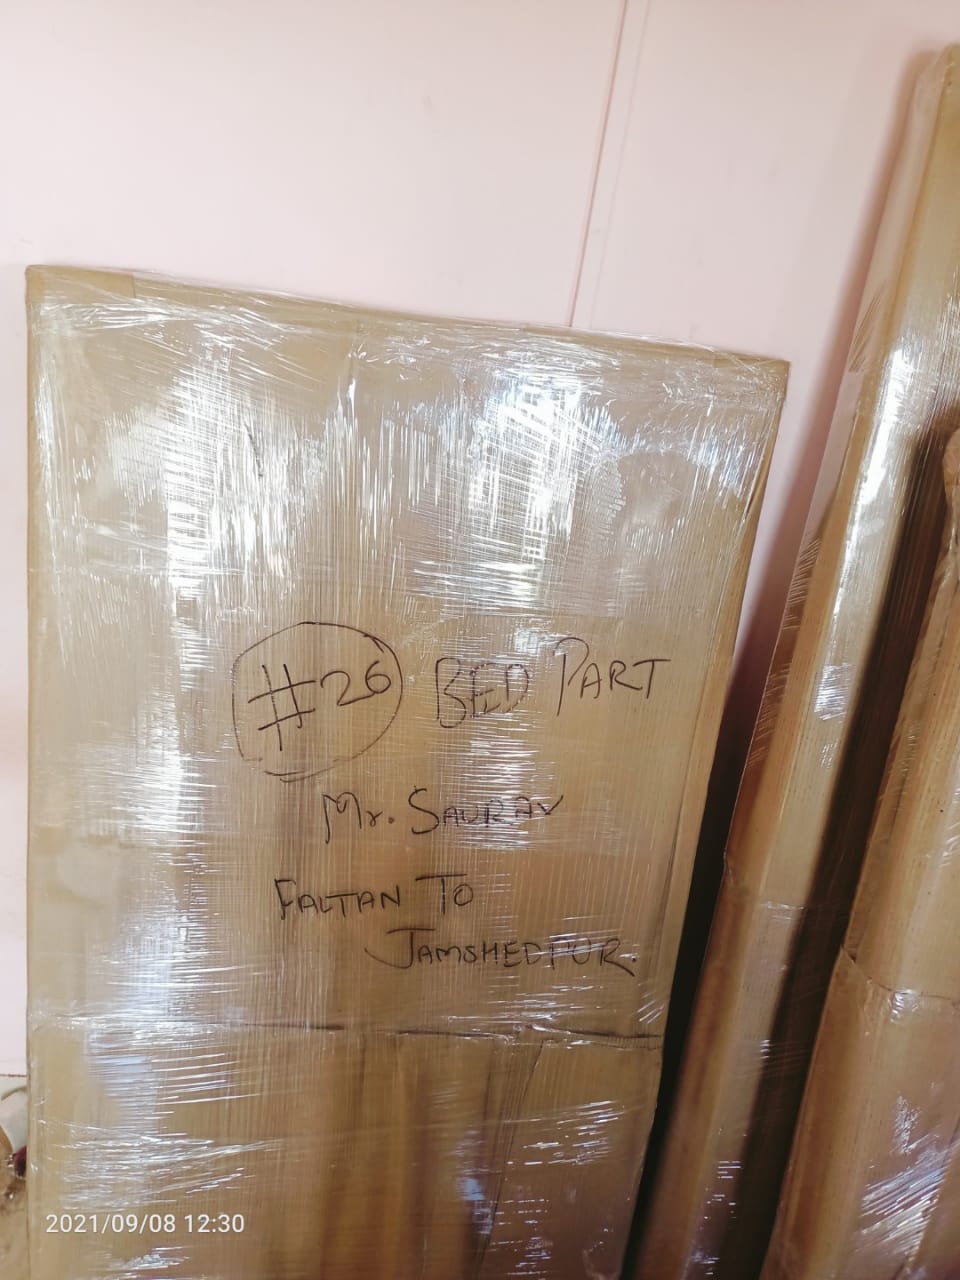 #26 BED PART
Mr. SAURAV
FALTAN TO
JAMSHEDPUR.
2021/09/08 12:30